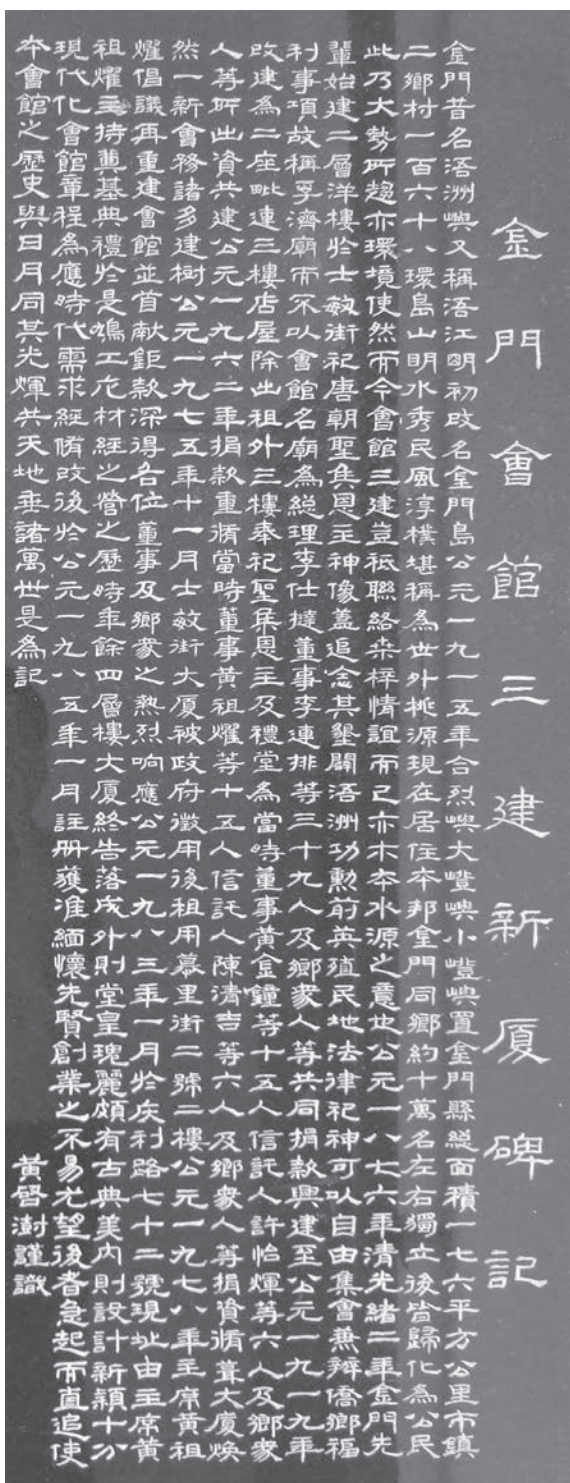 金門會館三建新厦碑記
金門昔名浯洲嶼又稱浯江明初改名金門島公元一九一五年合烈嶼大嶝嶼小嶝嶼置金門縣總面積一七六平方公里市鎮
二鄉村一百六十八環島山明水秀民風淳樸堪稱為世外桃源現在居住本邦金門同鄉約十萬名左右獨立後皆歸化為公民
此乃大勢所趨亦環境使然而今會館三建豈祇聯絡桑梓情誼而已亦木本水源之意也公元一八七六年清光緒二年金門先
輩始建二層洋樓於士敏街祀唐朝聖侯恩主神像蓋追念其墾闢浯洲功勳前英殖民地法律祀神可以自由集會兼辦僑鄉福
利事項故稱孚濟廟而不以會館名廟為總理李仕撻董事李連排等三十九人及鄉衆人等共同捐款興建至公元一九一九年
改建為二座毗連三樓店屋除出租外三樓奉祀聖侯恩主及禮堂為當時董事黃金鐘等十五人信託人許怡煇等六人及鄉衆
人等所出資共建公元一九六二年捐款重脩當時董事黃祖耀等十五人信託人陳清吉等六人及鄉衆人等捐資脩葺大廈煥
然一新會務諸多建樹公元一九七五年十一月士敏街大厦被政府徵用後租用慕里街二號二樓公元一九七八年主席黃祖
燿倡議再重建會館並首献鉅款深得各位董事及鄉衆之熱烈响應公元一九八三年一月於慶利路七十二號現址由主席黃
祖燿主持奠基典禮於是鳩工庀材經之營之歷時年餘四層樓大厦終告落成外則堂皇瑰麗頗有古典美內則設計新穎十分
現代化會館章程為應時代需求經脩改後於公元一九八五年一月註冊獲准緬懷先賢創業之不易尤望後者急起而直追使
本會館之歷史與日月同其光輝共天地垂諸萬世是為記
黃啓澍謹識